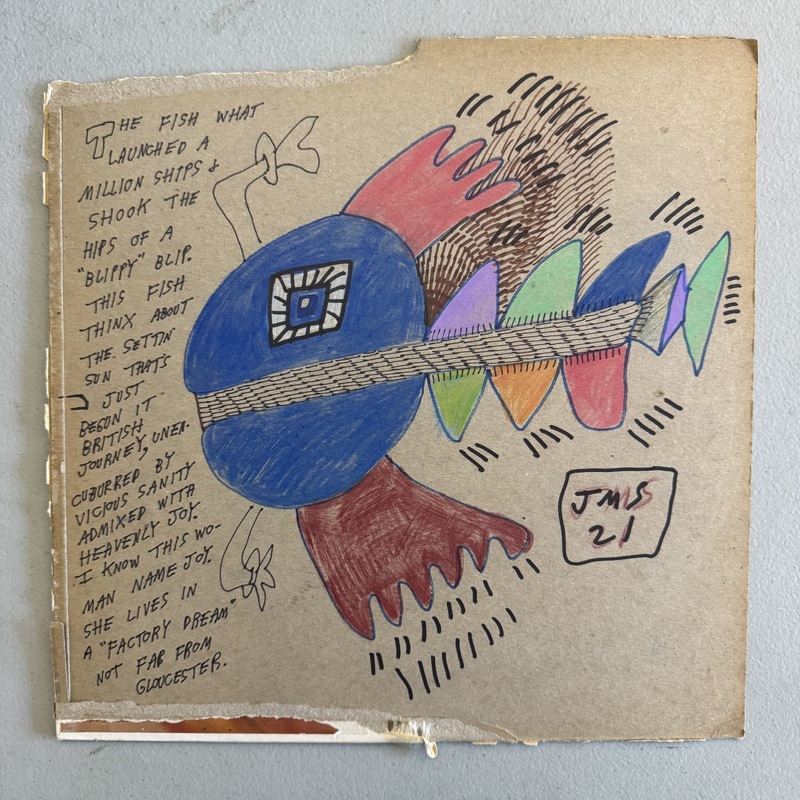 THE FISH WHAT
LAUNCHED A
MILLION SHIPS &
SHOOK THE
HIPS OF A
"BLIPPY" BLIP.
THIS FISH
THINX ABOUT
THE SETTIN'
SUN THAT'S
JUST
BEGUN IT
BRITISH
JOURNEY, UNEN-
CUBURRED BY
VICIOUS SANITY
ADMIXED WITH
HEAVENLY JOY.
I KNOW THIS WO-
MAN NAME JOY.
SHE LIVES IN
A "FACTORY DREAM"
NOT FAR FROM
GLOUCESTER.
JMSS
21